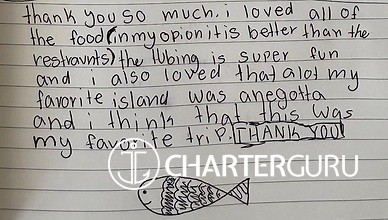 thank you so much. i loved all of
the food (in my opion it is better than the
restraunts) the tubing is super fun
and i also loved that alot my
favorite island was anegotta
and i think that this was
my favorite trip. THANK YOU
CHARTERGURU